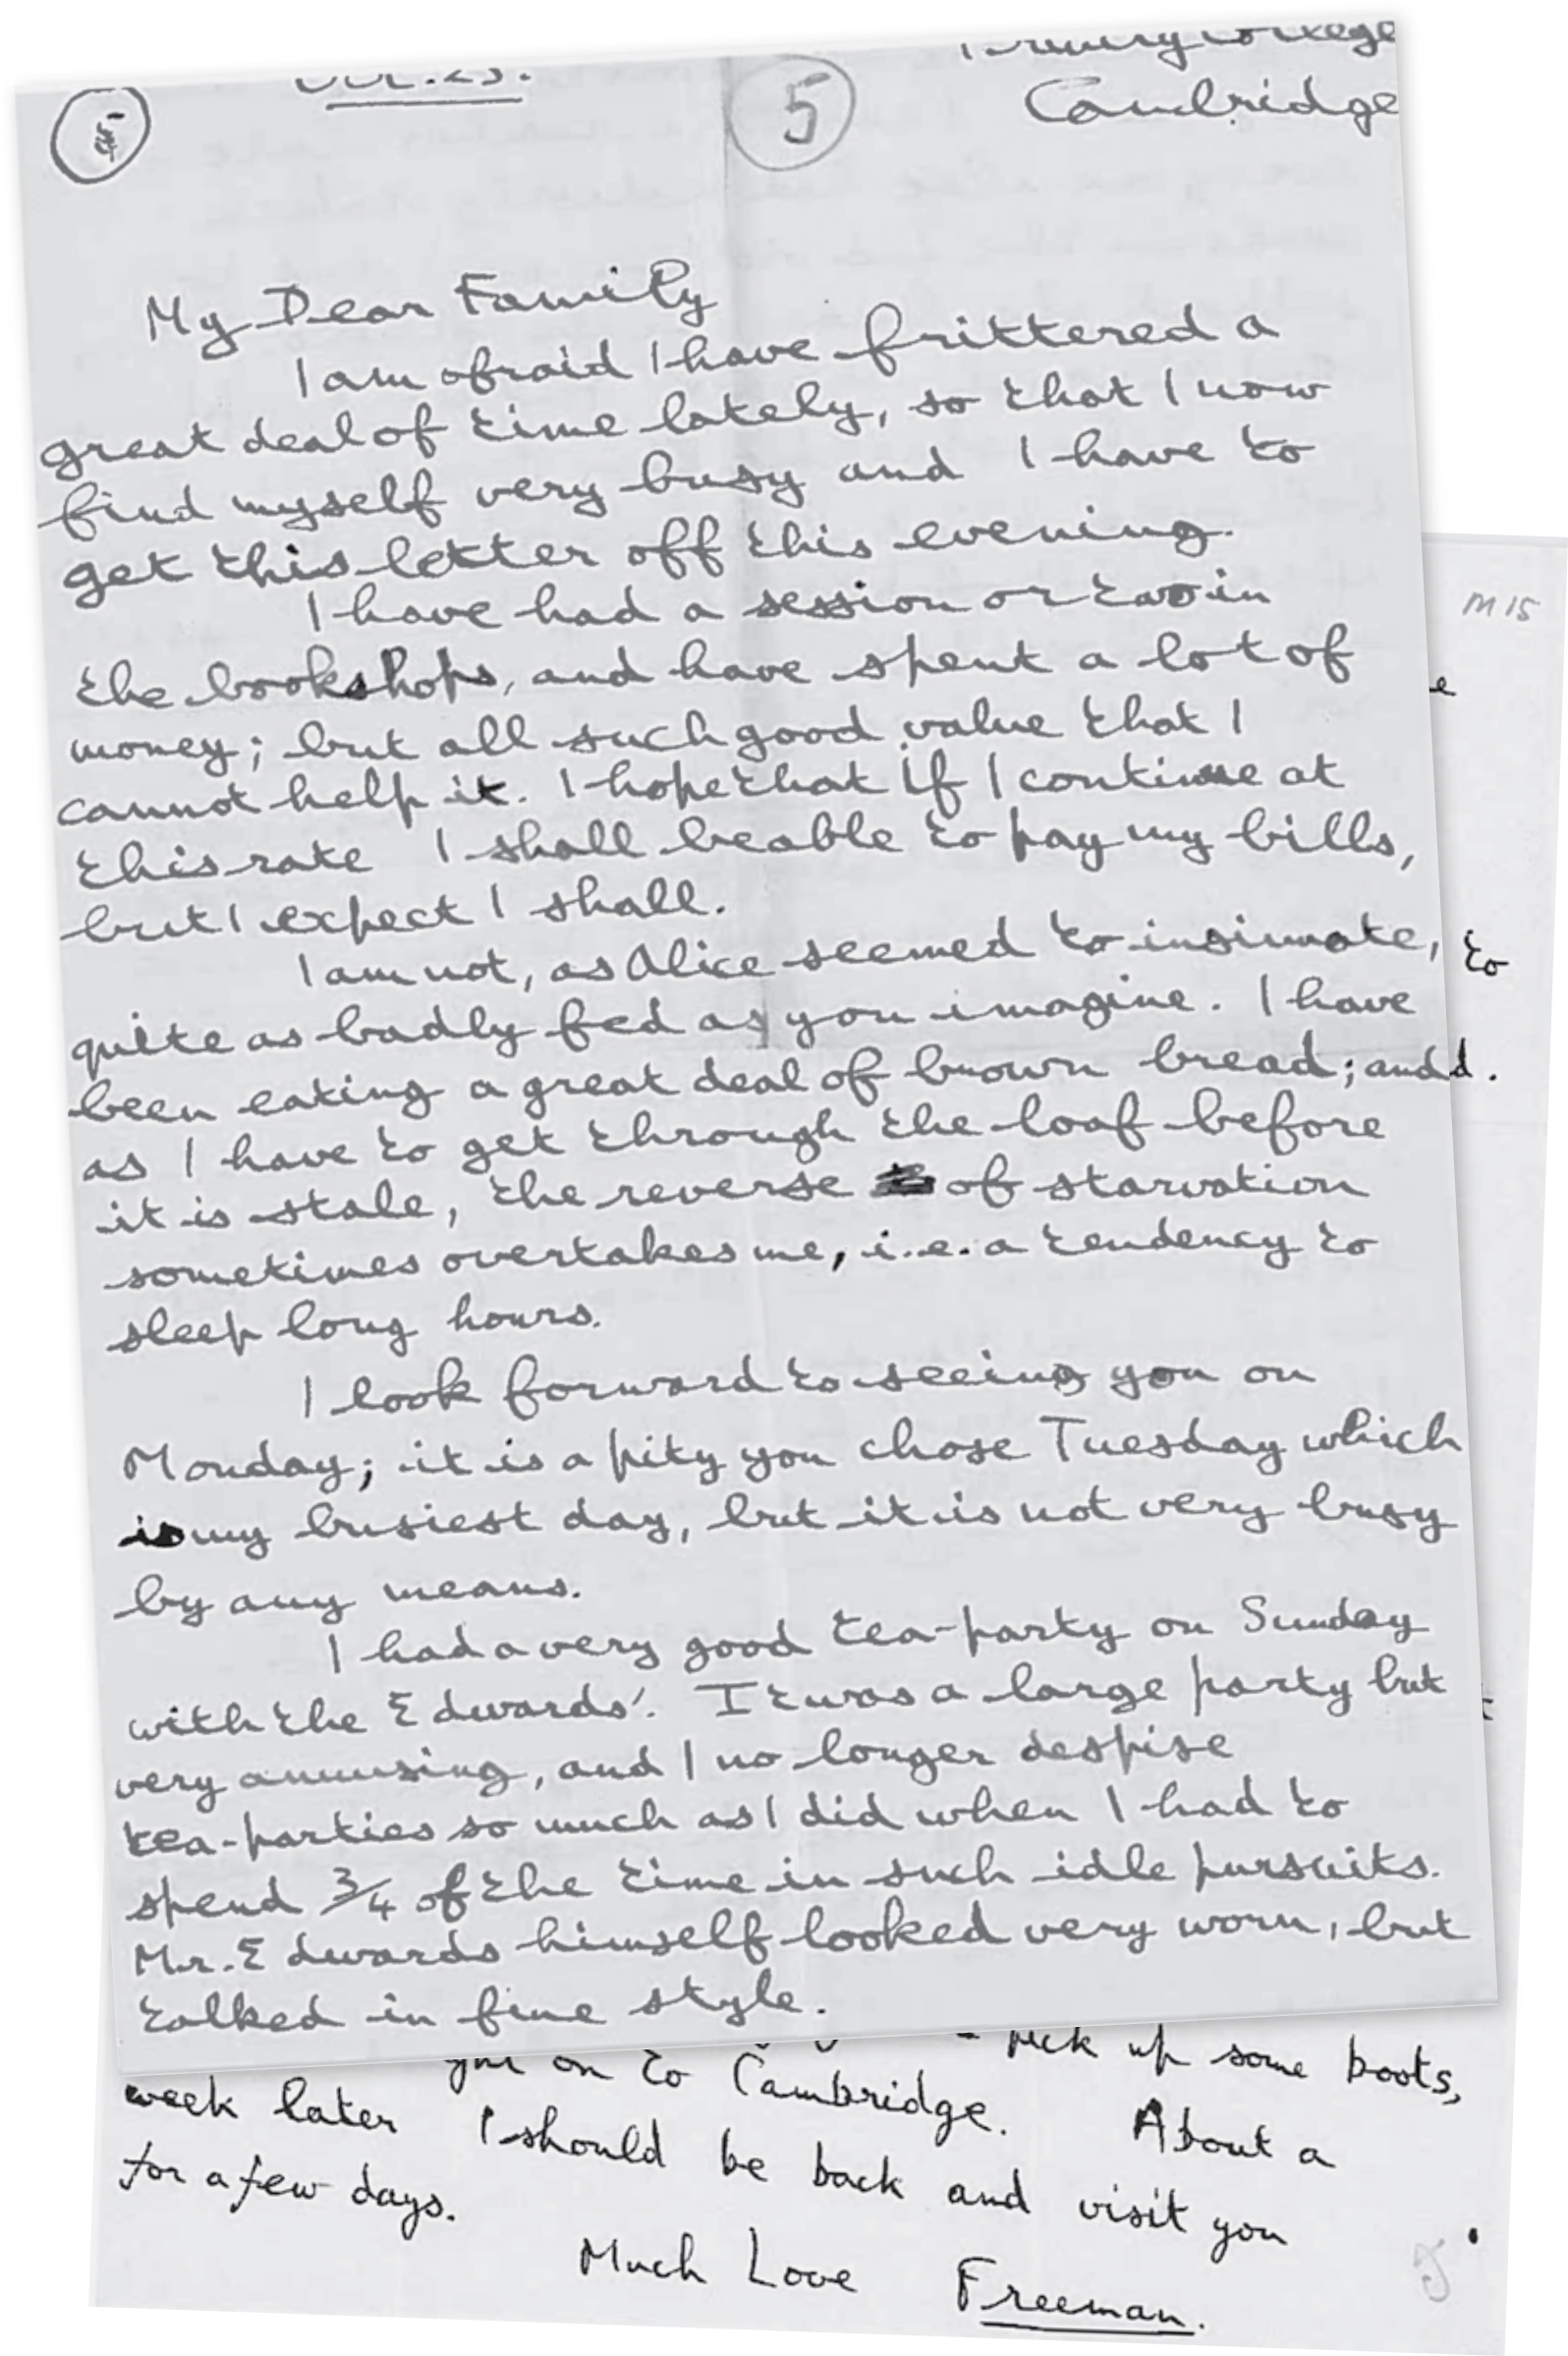 Oct. 25.
5
5
Trinity College
Cambridge
My Dear Family
I am afraid I have frittered a
great deal of time lately, so that I now
find myself very busy and I have to
get this letter off this evening.
I have had a session or two in
the bookshops, and have spent a lot of
money; but all such good value that I
cannot help it. I hope that if I continue at
this rate I shall be able to pay my bills,
but I expect I shall.
I am not, as Alice seemed to insinuate,
quite as badly fed as you imagine. I have
been eating a great deal of brown bread; and
as I have to get through the loaf before
it is stale, the reverse of starvation
sometimes overtakes me, i.e. a tendency to
sleep long hours.
I look forward to seeing you on
Monday; it is a pity you chose Tuesday which
is my busiest day, but it is not very busy
by any means.
I had a very good tea-party on Sunday
with the Edwards'. It was a large party but
very amusing, and I no longer despise
tea-parties so much as I did when I had to
spend 3/4 of the time in such idle pursuits.
Mr. Edwards himself looked very worn, but
talked in fine style.
M 15
to
d.
pick up some boots,
on to Cambridge. About a
week later I should be back and visit you
for a few days.
Much Love Freeman.